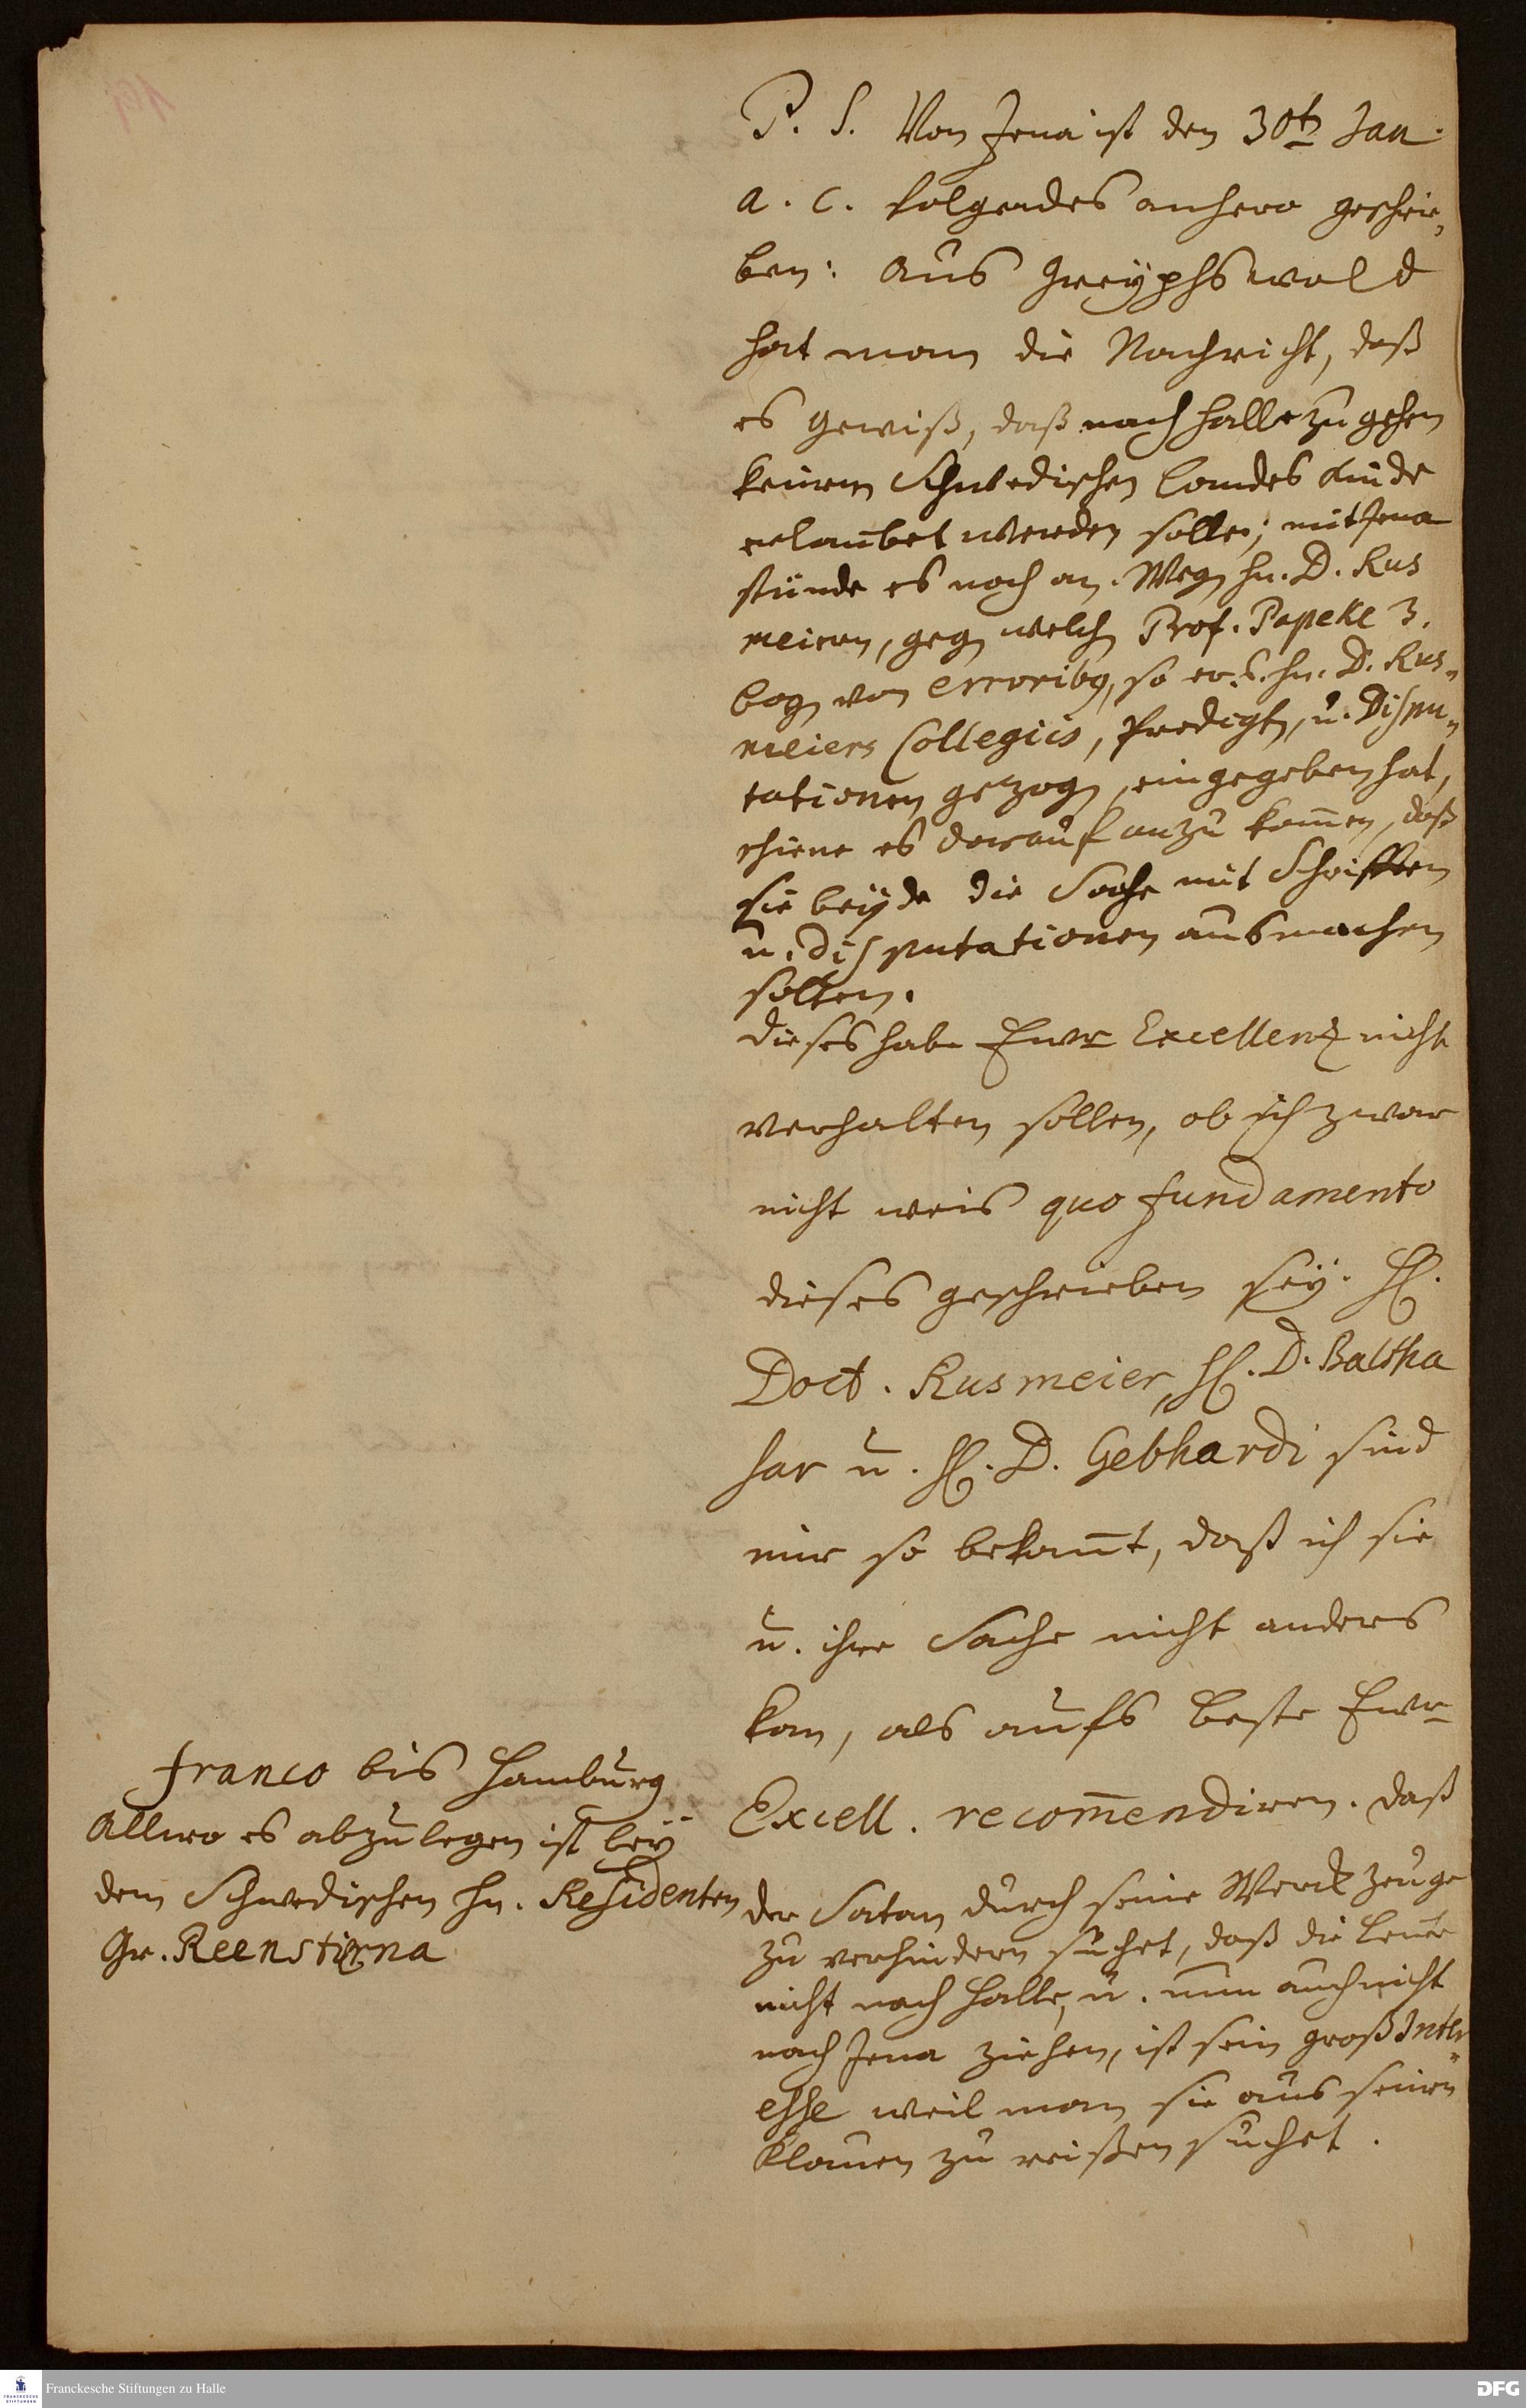 P. S. Von Jena ist den 30t. Jan.
a. c. folgendes anhero geschrie„
ben: Aus Greyphswald
hat man die Nachricht, daß
es gewiß, daß nach Halle zu gehen
keinem Schwedischen Landes Kinde
erlaubet werden solle; mit Jena
stünde es noch an. Wegn Hn. D. Rus
meiern, gegn welchn Prof. Papeke 3.
bogn von erroribq, so er Hn. D. Rus„
meiers Collegiis, Predigtn, u. Dispu„
tationen gezogn, eingegeben hat,
schiene es darauf anzukom̄en, daß
sie beyde die Sache mit Schrifften
u. Disputationen ausmachen
solten.
Dieses habe Ewr Excellentz nicht
verhalten sollen, ob ich zwar
nicht weis quo fundamento
dieses geschrieben sey. H.
Doct. Rusmeier, H. D. Baltha
sar u. H. D. Gebhardi sind
mir so bekan̄t, daß ich sie
u. ihre Sache nicht anders
kan, als aufs beste Ewr
Excell. recom̄endiren. Daß
der Satan durch seine Werckzeuge
zu verhindern suchet, daß die Leute
nicht nach Halle, u. nun auch nicht
nach Jena ziehen, ist sein groß Inter„
esse weil man sie aus seinen
Klauen zu reißen suchet.
franco bis Hamburg
Allwo es abzulegen ist bey
dem Schwedischen Hn. Residenten
Gr. Reenstierna
Franckesche Stiftungen zu Halle
DFG